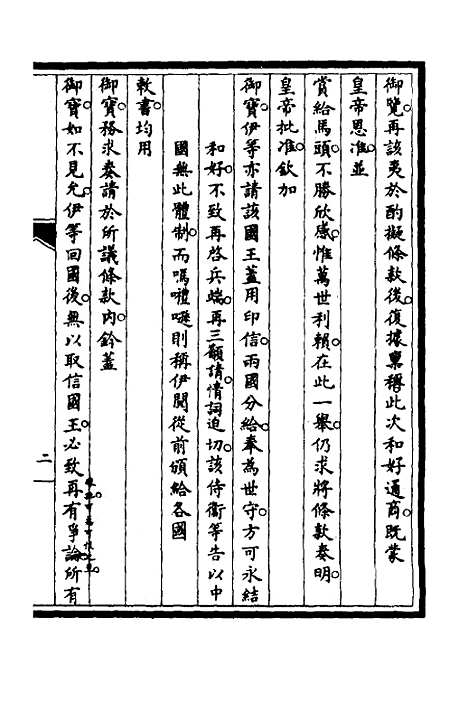 御覽再該夷於酌擬條款後復據稟稱此次和好通商既蒙
皇帝恩准並
賞給馬頭不勝欣感惟萬世利賴在此一舉仍求將條款奏明
皇帝批准欽加
御寶伊等亦請該國王蓋用印信兩國分給奉為世守方可永結
和好不致再啓兵端再三顓請情詞迫切該侍衛等告以中
國無此體制而嗎禮噠則稱伊閱從前頒給各國
敕書均用
御寶務求奏請於所議條款內鈐蓋
御寶如不見允伊等回國後無以取信國王必致再有爭論所有
二